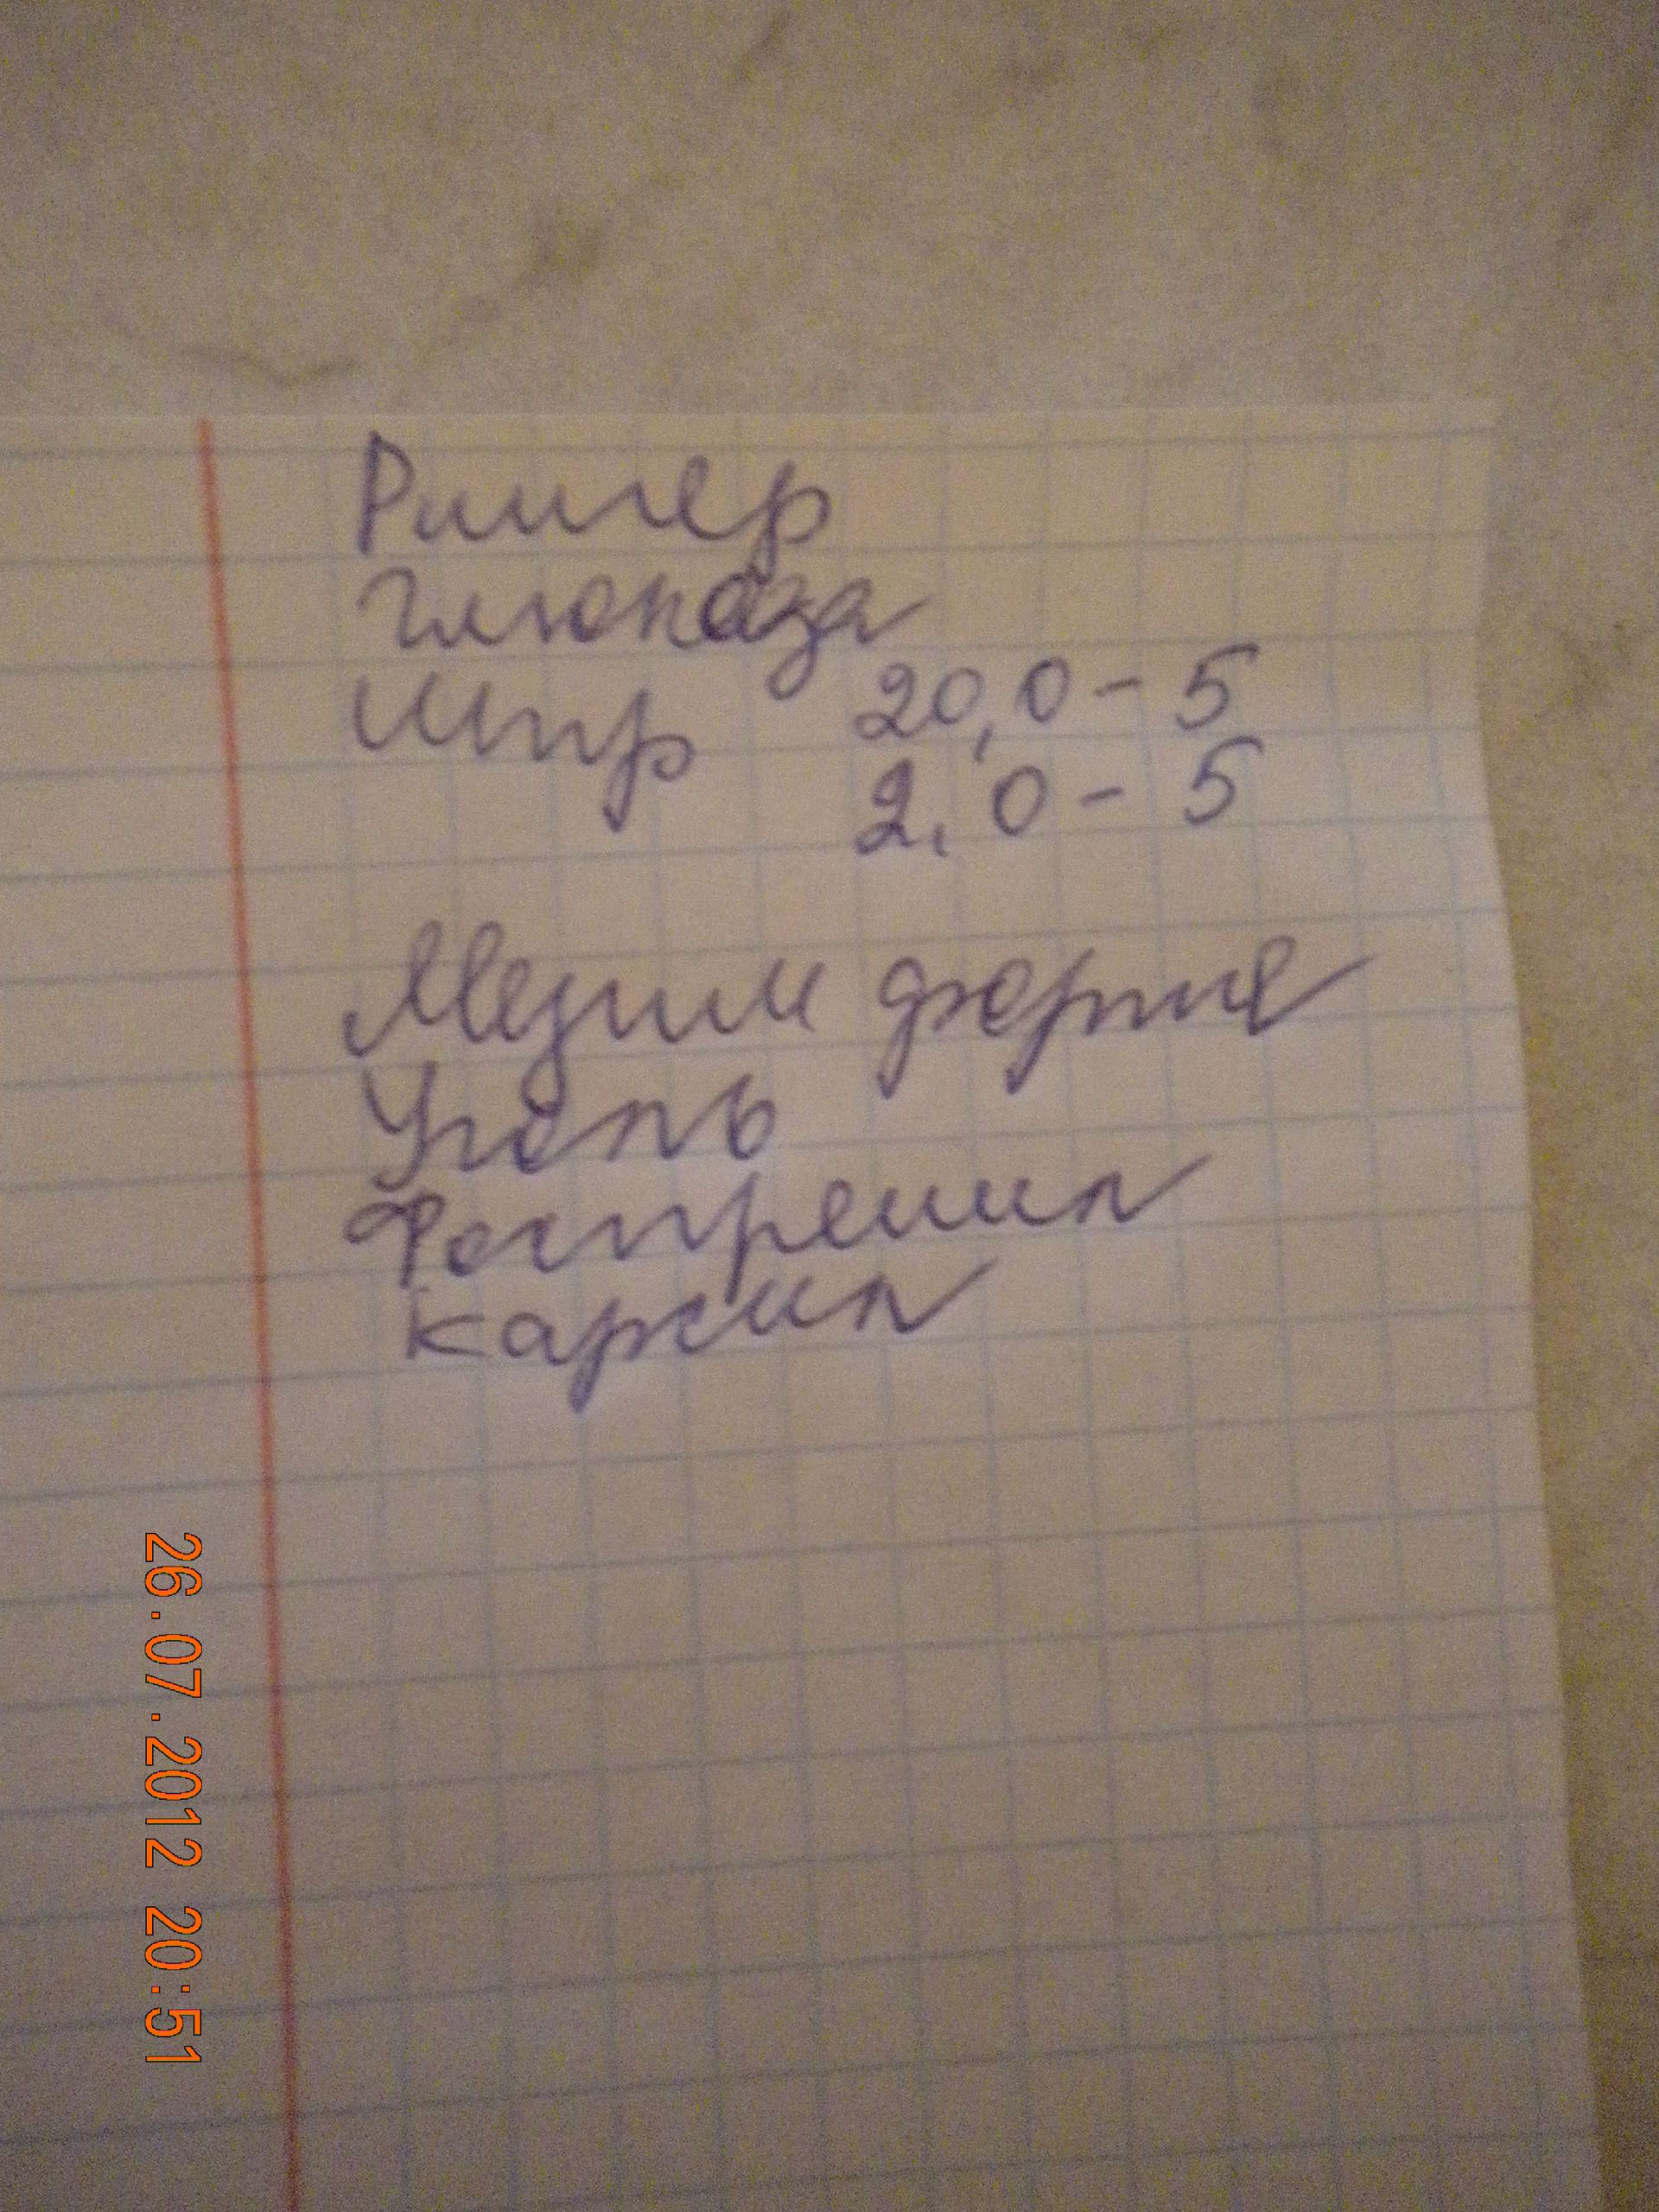 Рингер
Глюкоза
Шпр 20,0 - 5
2,0 - 5
Мезим форте
Уголь
Фоспренил
Карсил
26.07.2012 20:51